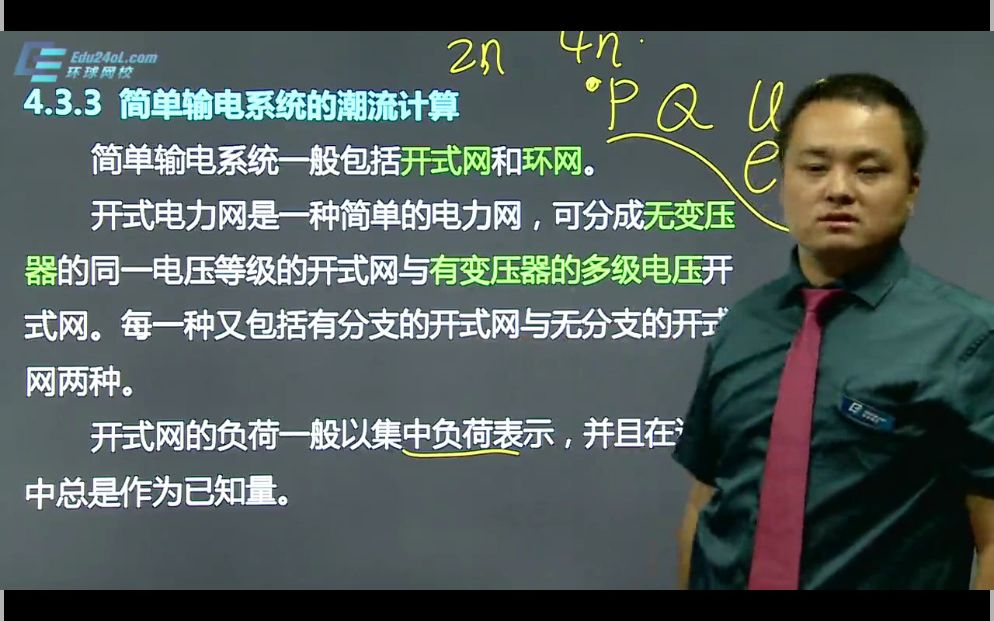 Edu24oL.com
环球网校
2n 4n
P Q U
e
4.3.3 简单输电系统的潮流计算
简单输电系统一般包括开式网和环网。
开式电力网是一种简单的电力网，可分成无变压
器的同一电压等级的开式网与有变压器的多级电压开
式网。每一种又包括有分支的开式网与无分支的开式
网两种。
开式网的负荷一般以集中负荷表示，并且在
中总是作为已知量。